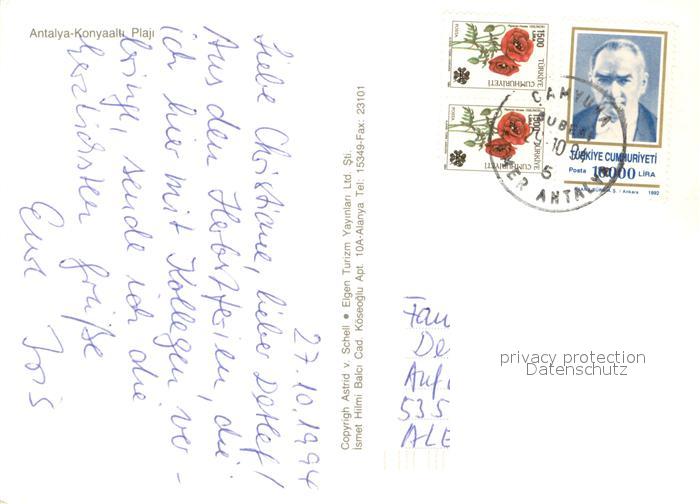 Antalya-Konyaaltı Plajı
27.10.1994
Liebe Christiane, lieber Detlef!
Aus den Herbstferien, die
ich hier mit Kollegen ver-
bringe, sende ich die
herzlichsten Grüße
Eure Iris
Copyrigh Astrid v. Schell ● Elgen Turizm Yayınları Ltd. Şti.
İsmet Hilmi Balcı Cad. Köseoğlu Apt. 10A-Alanya Tel: 15349-Fax: 23101
1500
LİRA
TÜRKİYE
CUMHURİYETİ
1500
TÜRKİYE
CUMHURİYETİ
TÜRKİYE CUMHURİYETİ
Posta 10000 LİRA
Ankara 1992
ÇAMYUVA
ŞUBESİ
10
5
ANTALYA
Fam
De
Auf
535
ALE
privacy protection
Datenschutz